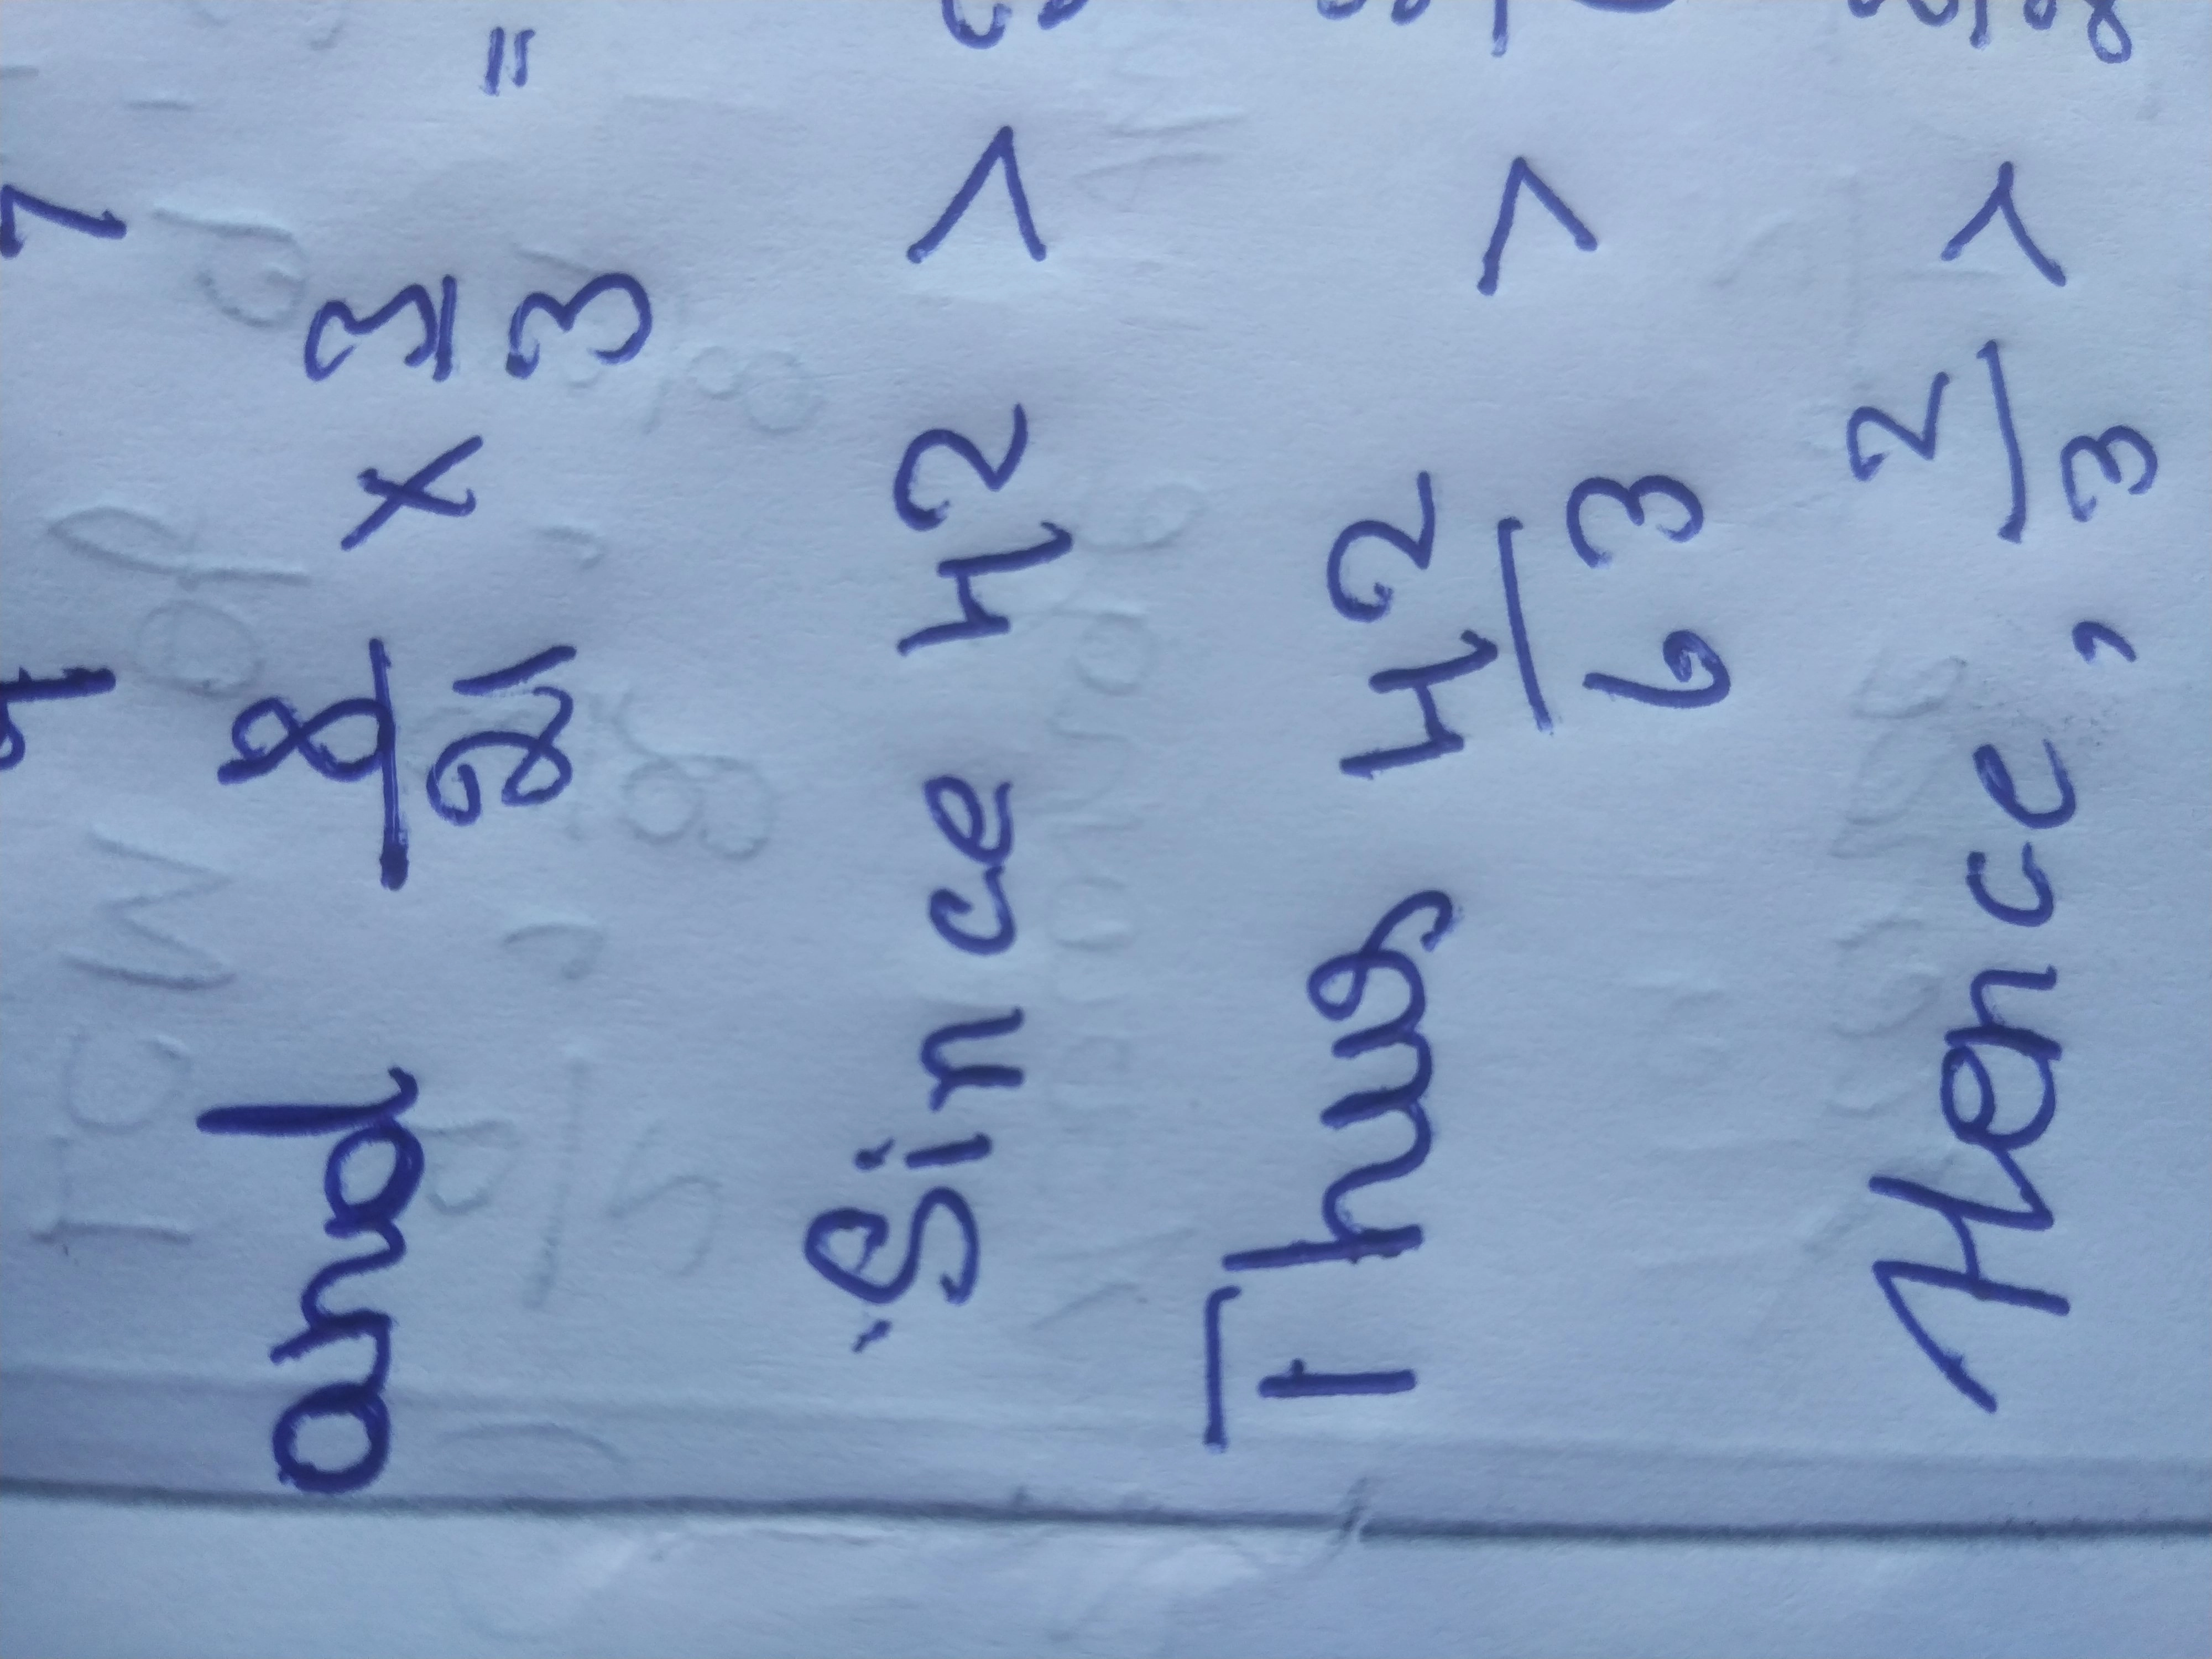 and 8/21 × 3/3 =
Since 42 >
Thus 42/63 >
Hence, 2/3 >